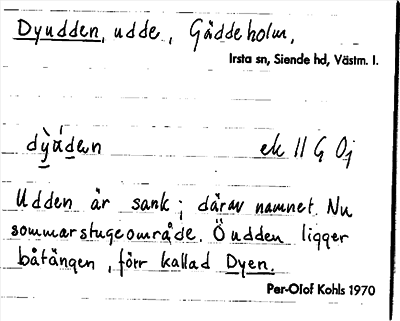 Dyudden, udde, Gäddeholm,
Irsta sn, Siende hd, Västm. l.
ek 11 G 0j
Udden är sank; därav namnet. Nu
sommarstugeområde. Ö udden ligger
båtängen, förr kallad Dyen.
Per-Olof Kohls 1970